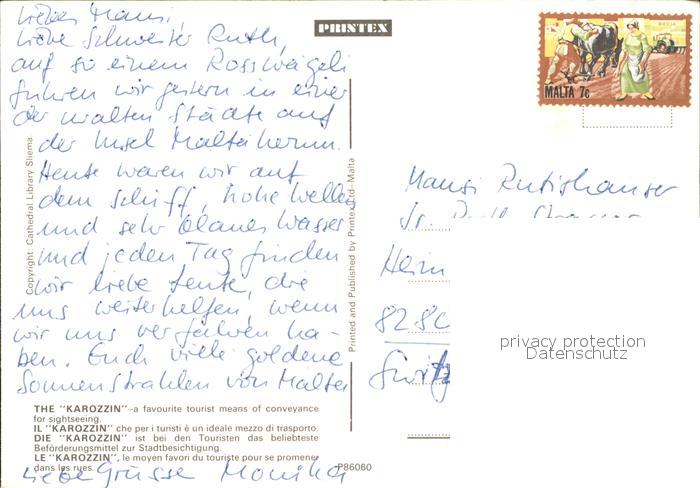 Liebes Mausi,
liebe Schwester Ruth,
auf so einem Rosswägeli
fuhren wir gestern in einer
der uralten Städte auf
der Insel Malta herum.
Heute waren wir auf
dem Schiff, hohe Wellen
und sehr blaues Wasser
und jeden Tag finden
wir liebe Leute, die
uns weiterhelfen, wenn
wir uns verfahren ha-
ben. Euch viele goldene
Sonnenstrahlen von Malta
THE "KAROZZIN"—a favourite tourist means of conveyance
for sightseeing.
IL "KAROZZIN" che per i turisti è un ideale mezzo di trasporto.
DIE "KAROZZIN" ist bei den Touristen das beliebteste
Beförderungsmittel zur Stadtbesichtigung.
LE "KAROZZIN", le moyen favori du touriste pour se promener
dans les rues.
Liebe Grüsse Monika
P86060
Copyright: Cathedral Library Sliema
PRINTEX
Printed and Published by Printex Ltd—Malta
MALTA 7c
Mausi Rutishauser
Sr.
Heim
8280
privacy protection
Datenschutz